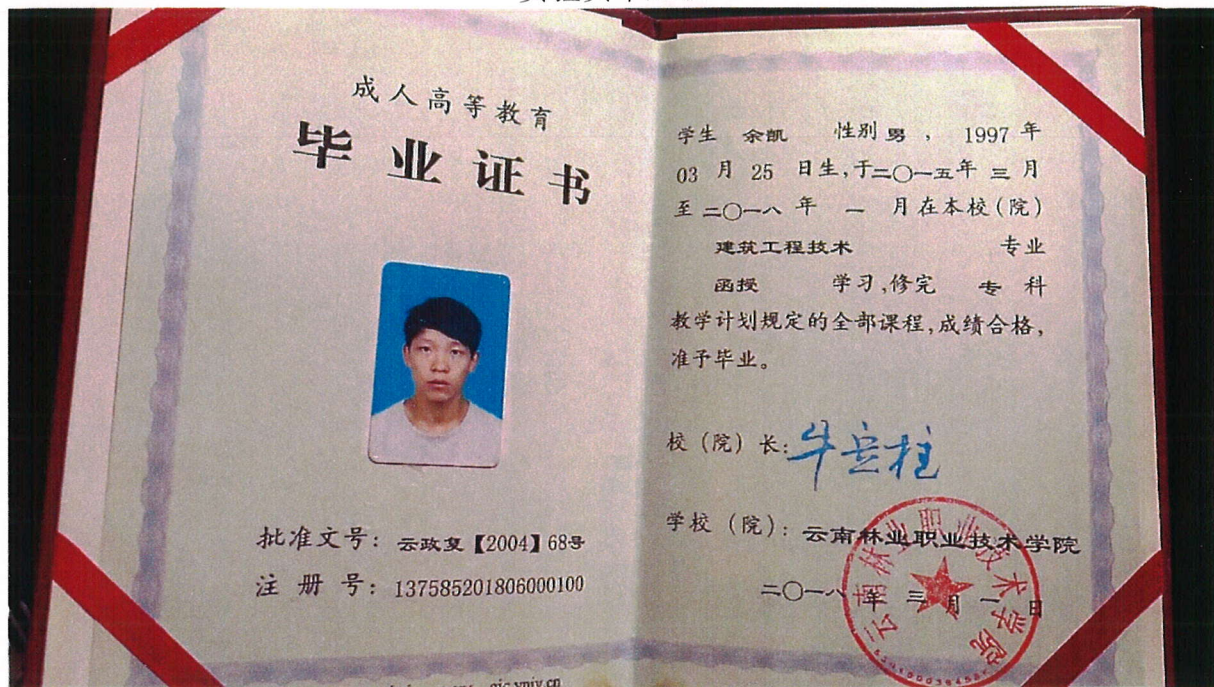 成人高等教育
毕业证书
批准文号：云政复【2004】68号
注 册 号：137585201806000100
学生 余凯 性别 男 ， 1997 年
03 月 25 日生,于二〇一五年 三 月
至 二〇一八 年 一 月在本校(院)
建筑工程技术 专业
函授 学习,修完 专 科
教学计划规定的全部课程,成绩合格,
准予毕业。
校（院）长:
学校（院）: 云南林业职业技术学院
二〇一八 年 三 月 一 日
云南林业职业技术学院